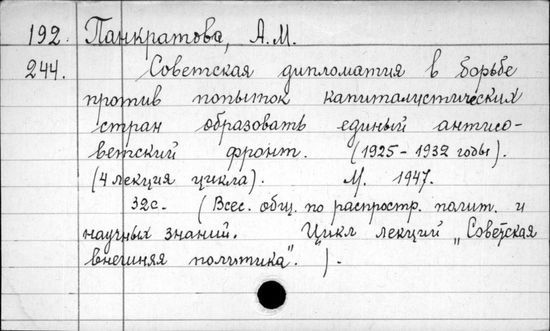 192. Панкратова, А.М.
244. Советская дипломатия в борьбе
против попыток капиталистических
стран образовать единый антисо-
ветский фронт. (1925-1932 годы).
(4 лекция цикла). М. 1947.
32с. (Всес. общ. по распростр. полит. и
научных знаний. Цикл лекций „Советская
внешняя политика". ).